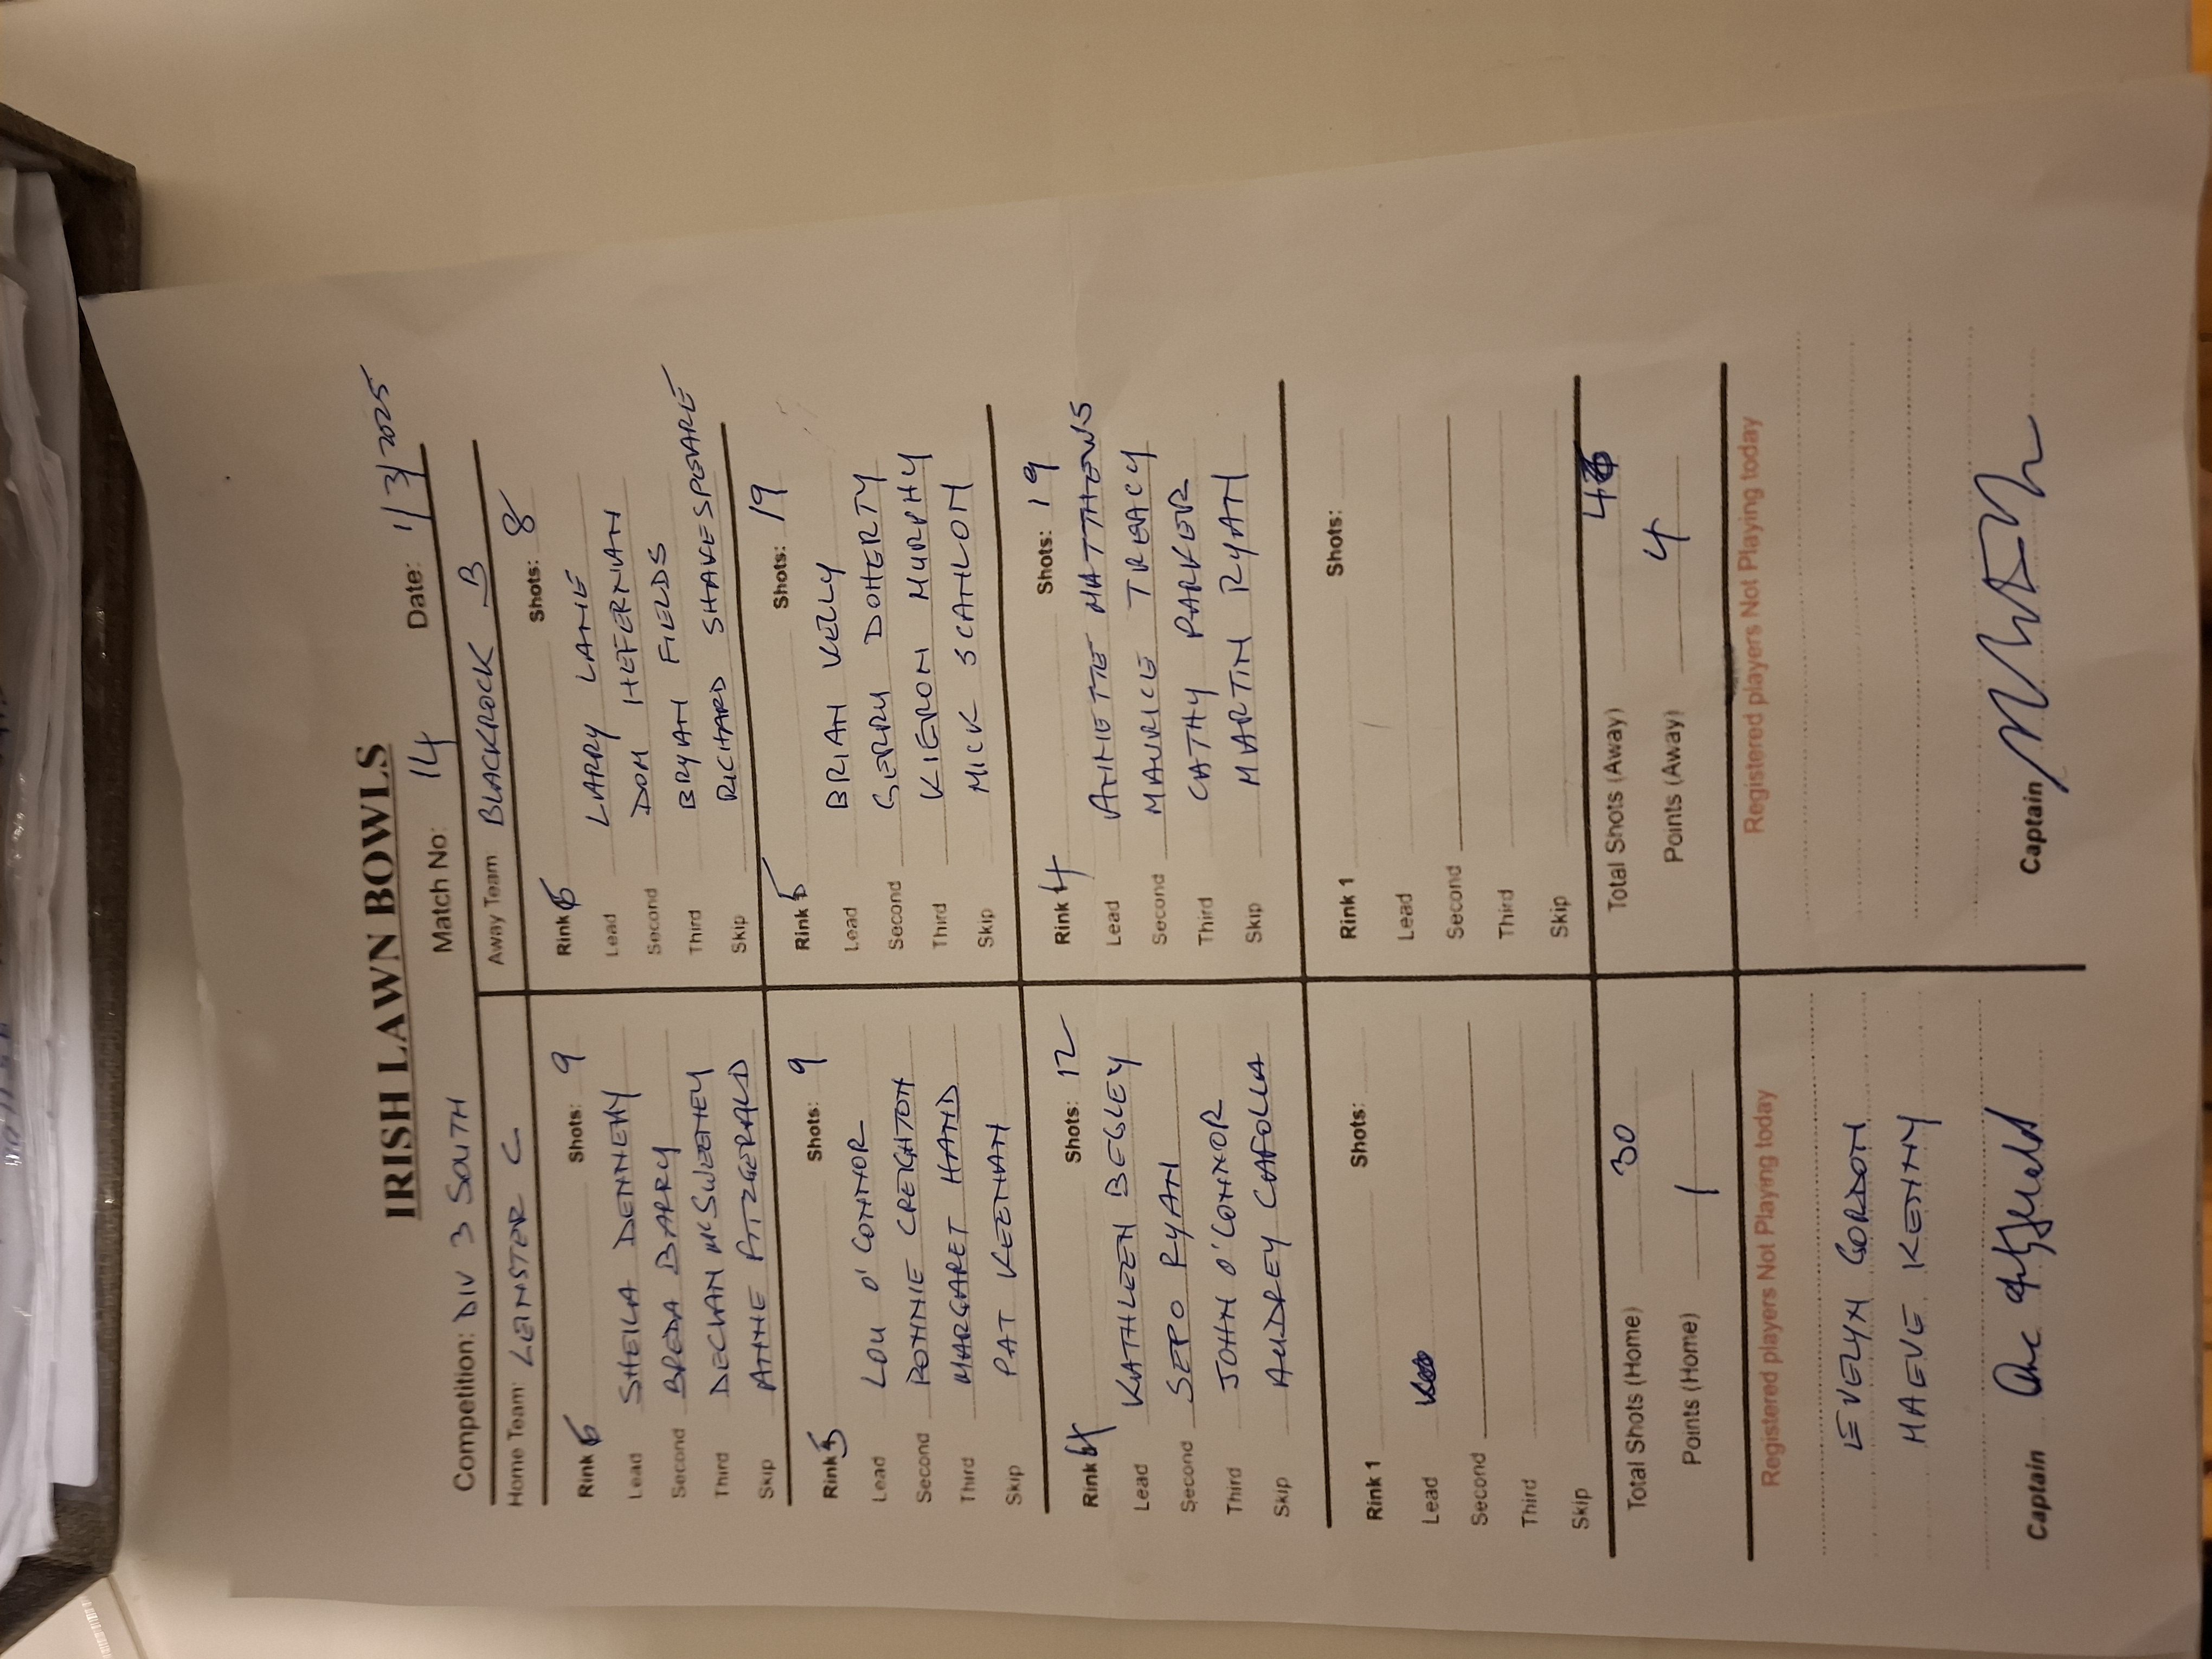 IRISH LAWN BOWLS
Competition: DIV 3 SOUTH Match No: 14 Date: 1/3/2025
Home Team: LEINSTER C Away Team BLACKROCK B
Rink 6 Shots: 9 Rink 6 Shots: 8
Lead SHEILA DENNEHY Lead LARRY LANE
Second BREDA BARRY Second DOM HEFERNAN
Third DECLAN McSWEENEY Third BRYAN FIELDS
Skip ANNE FITZGERALD Skip RICHARD SHAKESPEARE
Rink 5 Shots: 9 Rink 5 Shots: 19
Lead LOU O'CONNOR Lead BRIAN KELLY
Second RONNIE CREIGHTON Second GERRY DOHERTY
Third MARGARET HAND Third KIERON MURPHY
Skip PAT KEENAN Skip MICK SCANLON
Rink 4 Shots: 12 Rink 4 Shots: 19
Lead KATHLEEN BEGLEY Lead ANNETTE MATTHEWS
Second SEPO RYAN Second MAURICE TREACY
Third JOHN O'CONNOR Third CATHY PARKER
Skip AUDREY CAFOLLA Skip MARTIN RYAN
Rink 1 Shots: Rink 1 Shots:
Lead Lead
Second Second
Third Third
Skip Skip
Total Shots (Home) 30 Total Shots (Away)
Points (Home) 1 Points (Away) 4
Registered players Not Playing today Registered players Not Playing today
EVELYN GORDON
MAEVE KENNY
Captain Captain